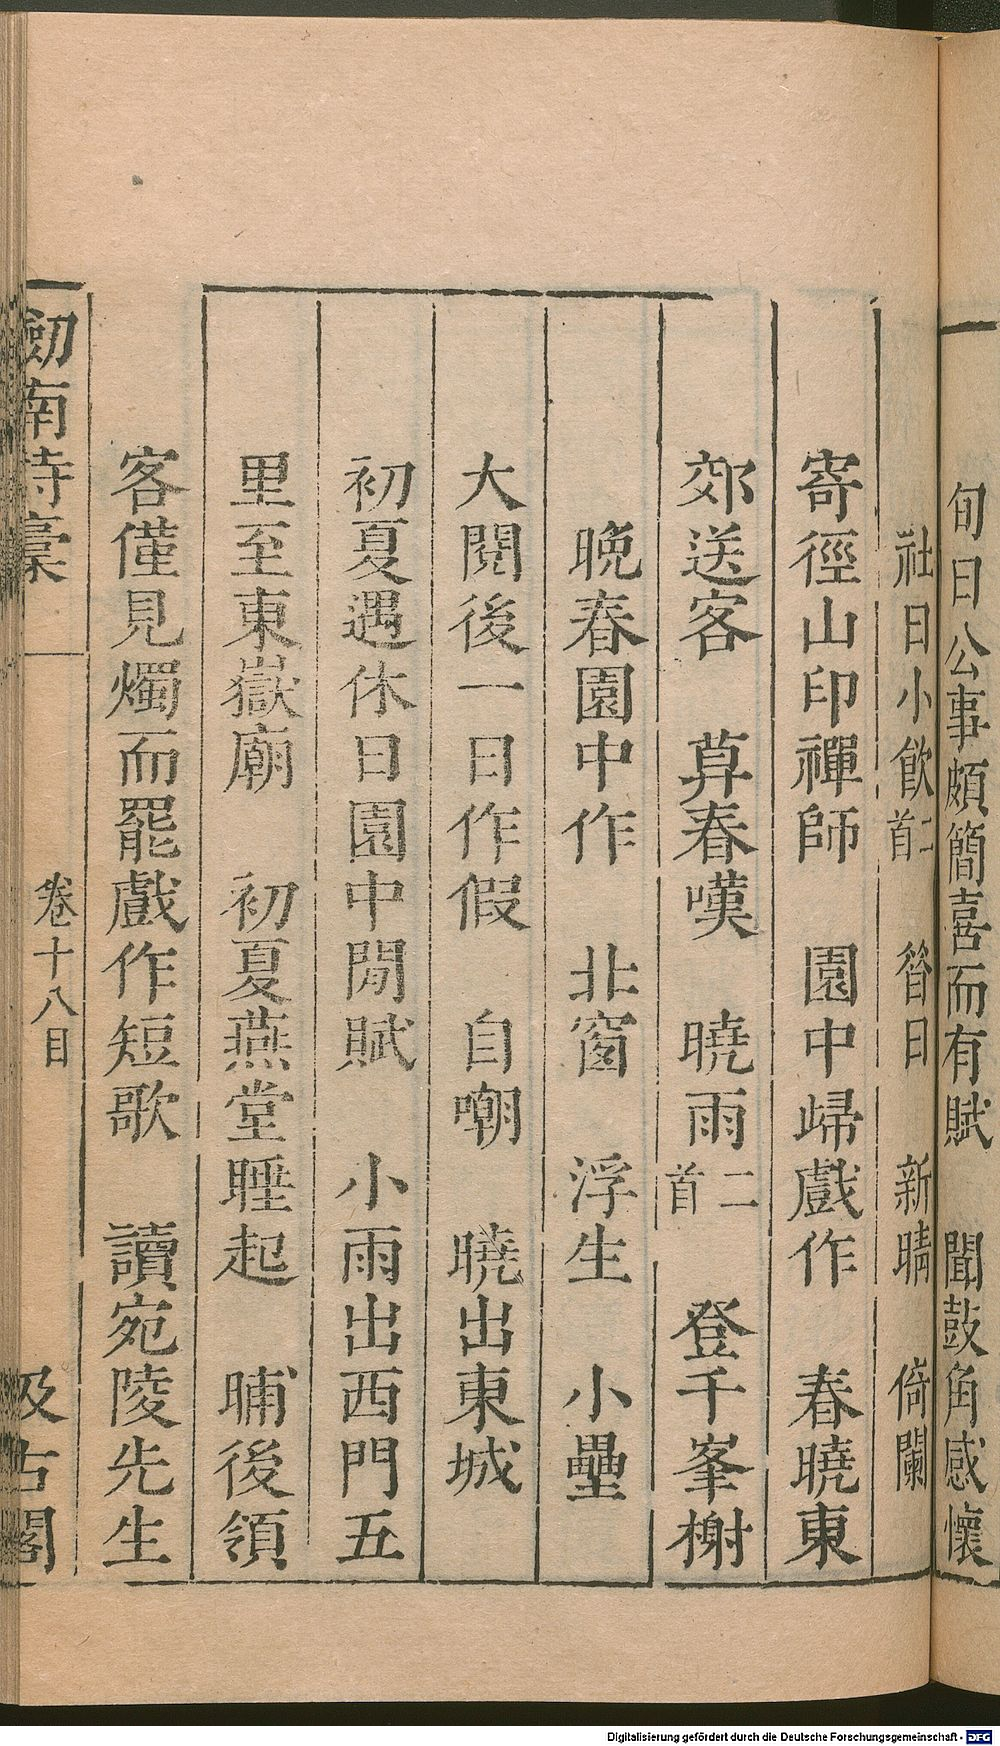 旬日公事頗簡喜而有賦　聞鼓角感懷
社日小飲二首　昝日　新晴　倚闌
寄徑山印禪師　園中歸戲作　春曉東
郊送客　算春嘆　曉雨二首　登千峯榭
晚春園中作　北窗　浮生　小壘
大閱後一日作假　自嘲　曉出東城
初夏遇休日園中閒賦　小雨出西門五
里至東嶽廟　初夏燕堂睡起　晡後領
客僅見燭而罷戲作短歌　讀宛陵先生
劒南詩稾　卷十八目　汲古閣
Digitalisierung gefördert durch die Deutsche Forschungsgemeinschaft - DFG